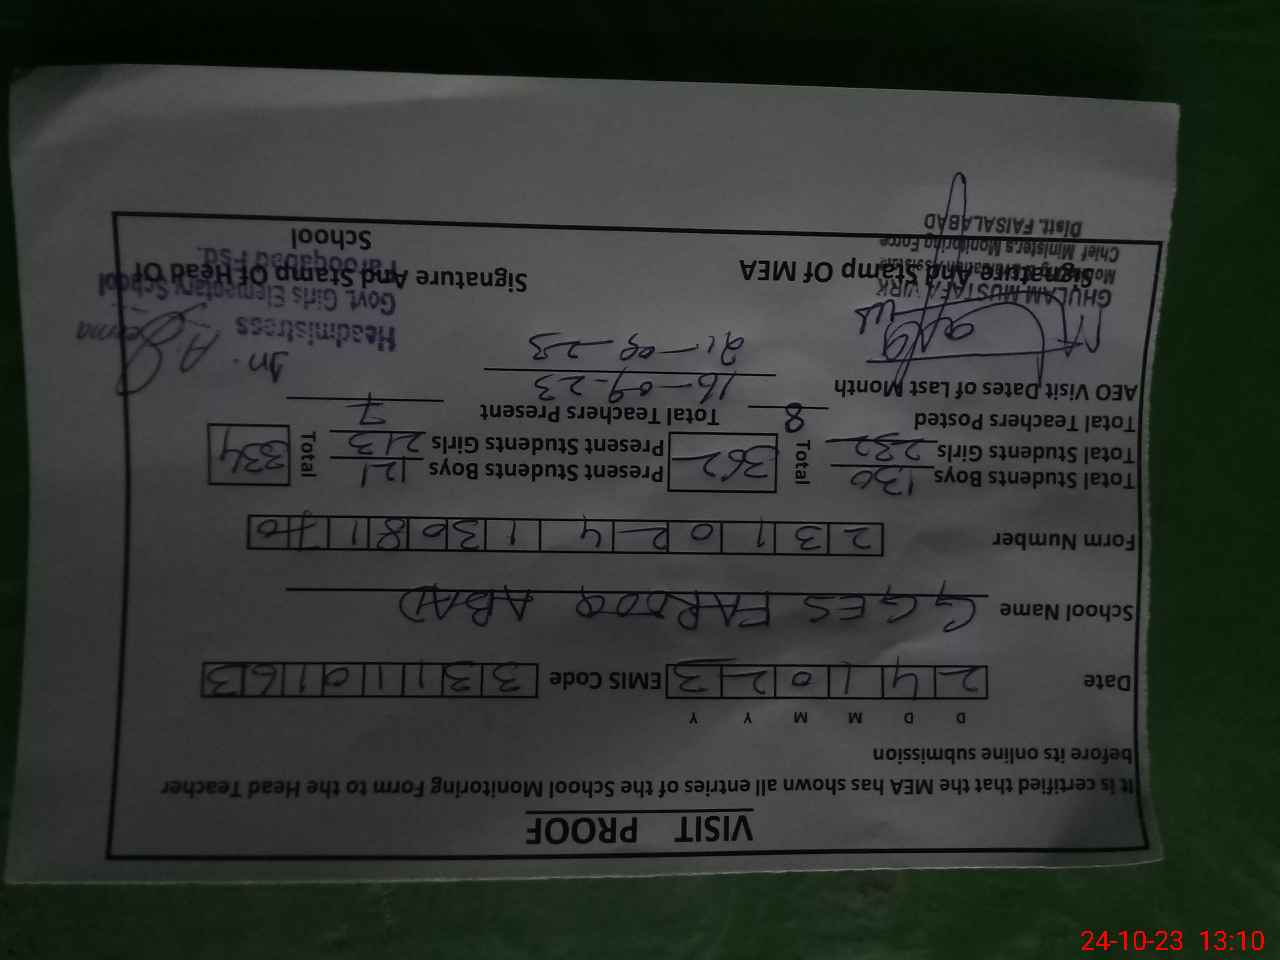 VISIT PROOF
It is certified that the MEA has shown all entries of the School Monitoring Form to the Head Teacher
before its online submission
D D M M Y Y
Date 2 4 1 0 2 3 EMIS Code 3 3 1 1 0 1 6 3
School Name GGES FAROOQ ABAD
Form Number 2 3 1 0 2 4 1 3 0 8 1 7 0
Total Students Boys 130 Total 362 Present Students Boys 121 Total 334
Total Students Girls 232 Present Students Girls 213
Total Teachers Posted 8 Total Teachers Present 7
AEO Visit Dates of Last Month 16-09-23
21-09-23
GHULAM MUSTAFA VIRK
Chief Minister's Monitoring Force
Distt. FAISALABAD
Signature And Stamp Of MEA
Headmistress
Govt. Girls Elementary School
Farooqabad Fsd.
Signature And Stamp Of Head Of
School
24-10-23 13:10